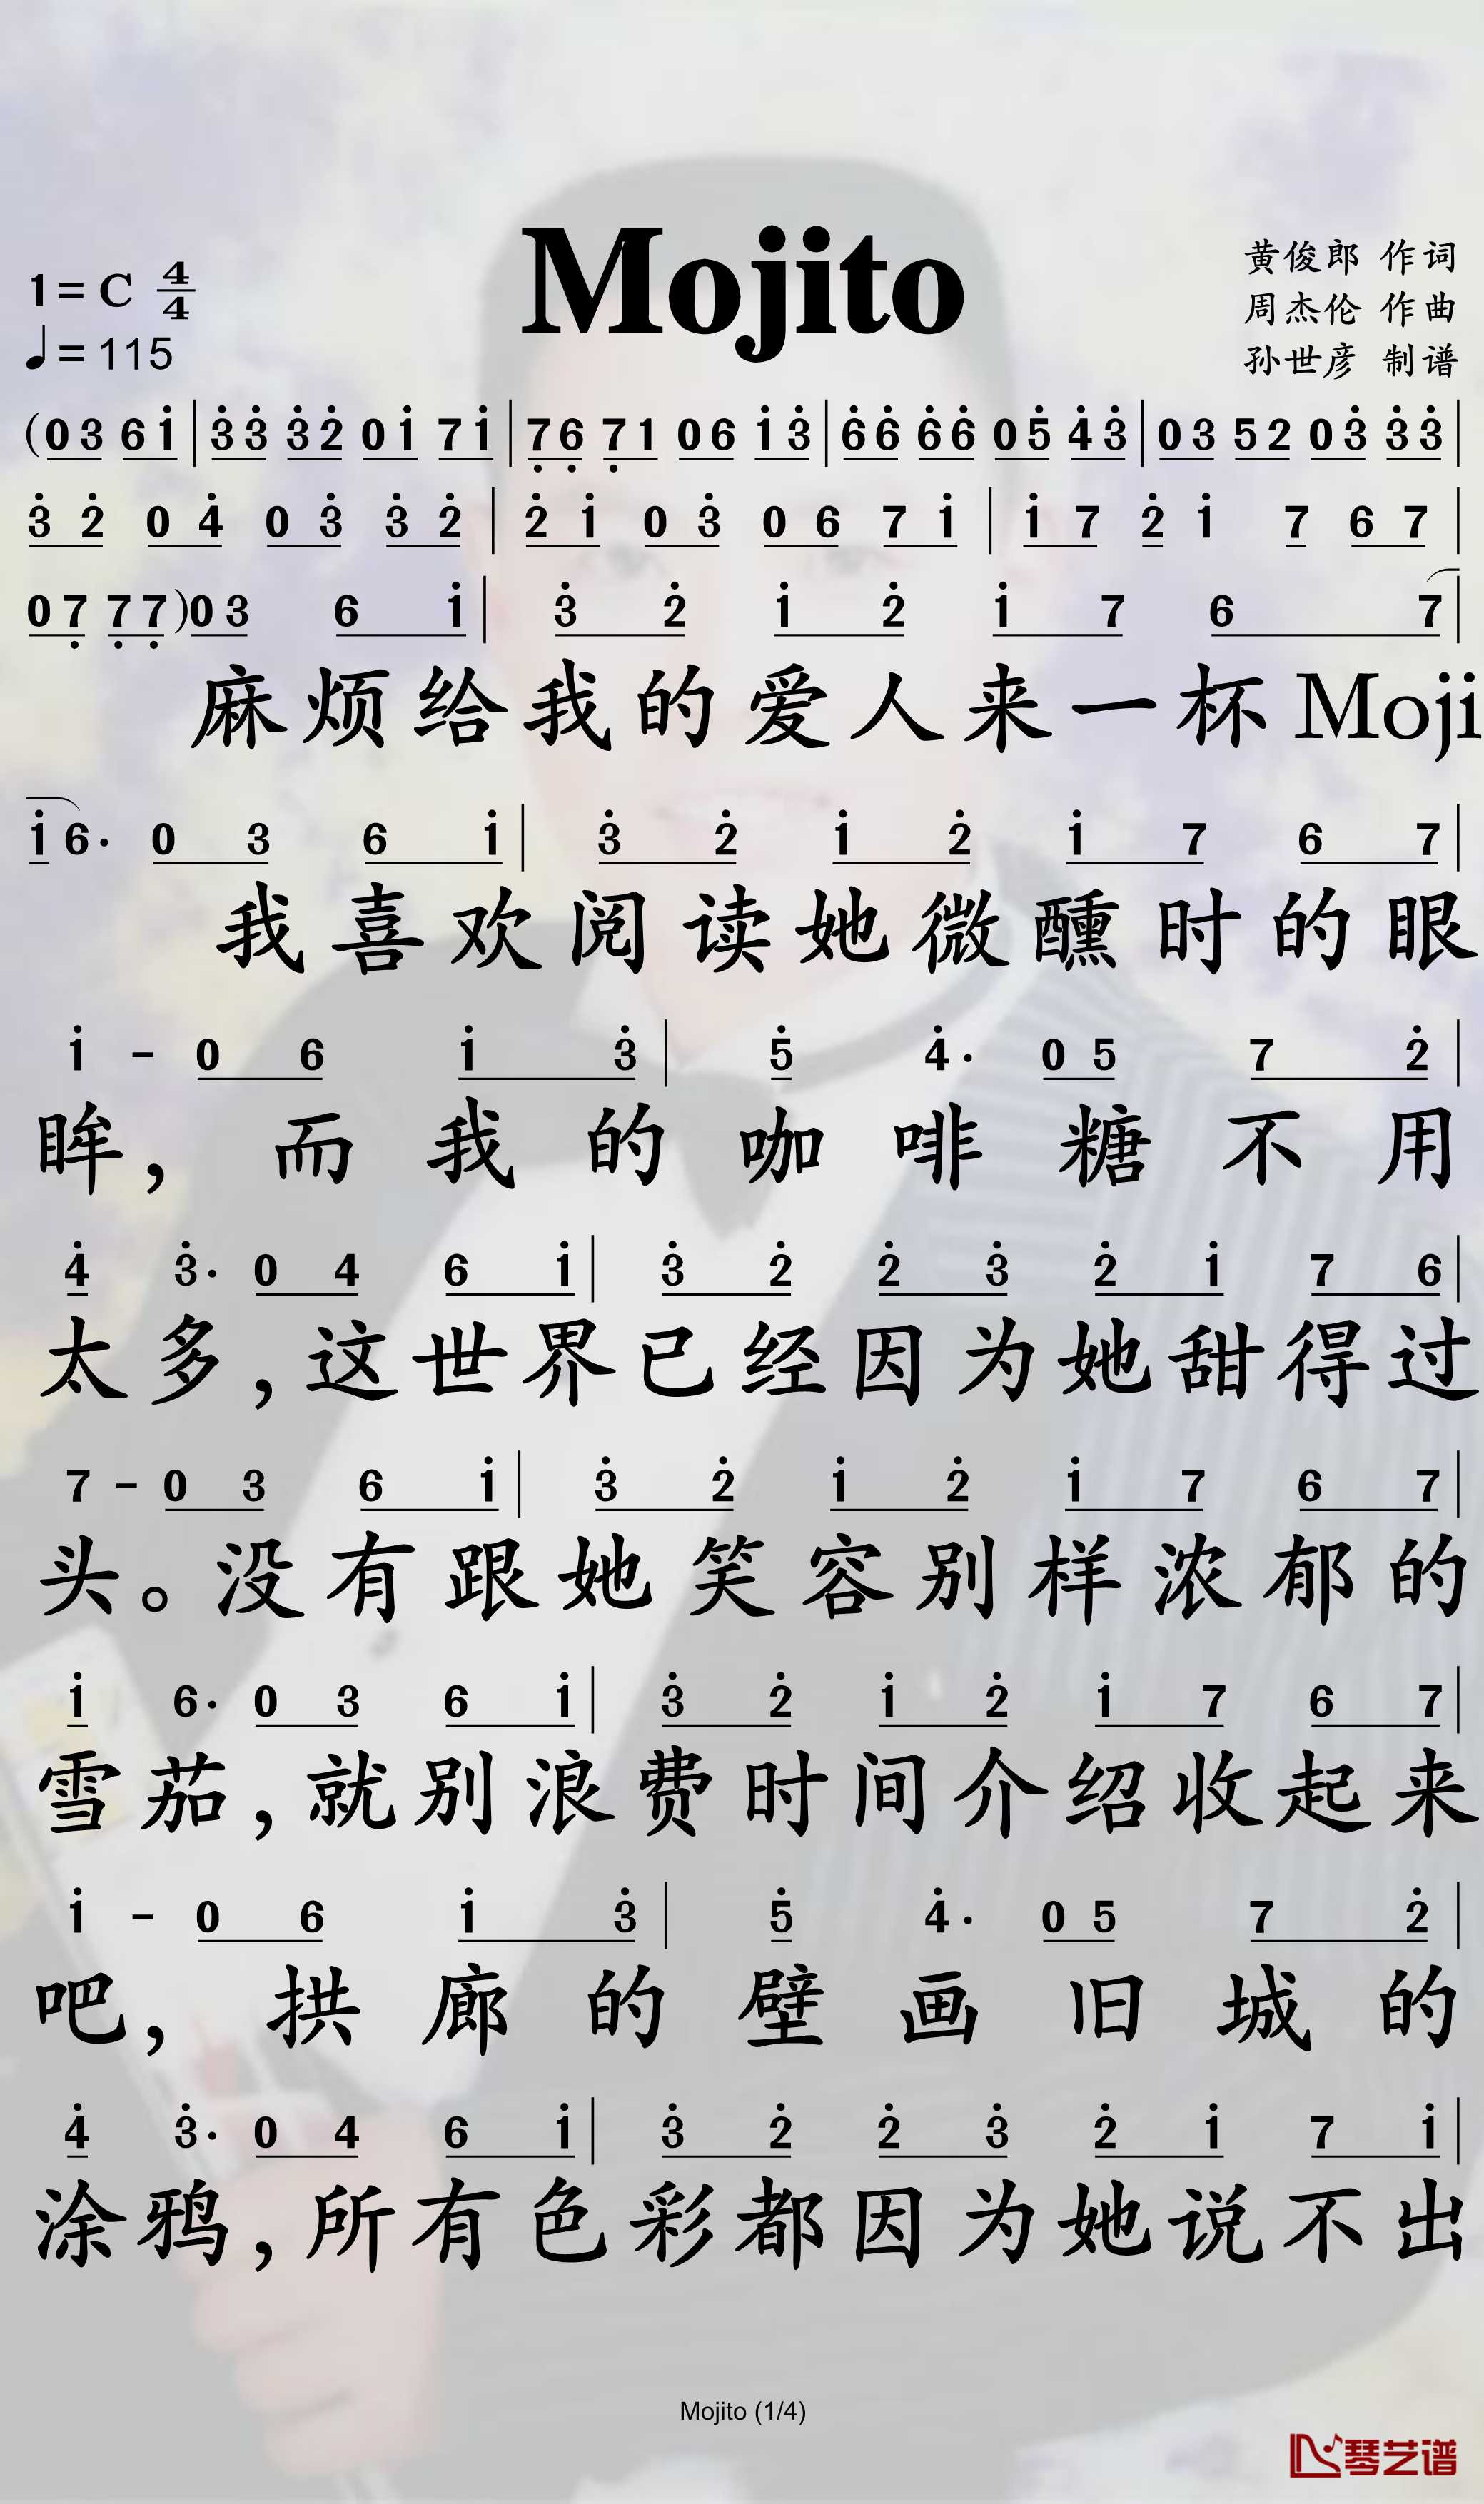 Mojito
1=C 4/4
♩=115
黄俊郎 作词
周杰伦 作曲
孙世彦 制谱
(03 6i̇|3̇3̇ 3̇2̇ 0i̇ 7i̇|7̣6̣ 7̣1 06 i̇3̇|6̇6̇ 6̇6̇ 05̇ 4̇3̇|03 52 03̇ 3̇3̇|
3̇2̇ 04̇ 03̇ 3̇2̇|2̇i̇ 03̇ 06 7i̇|i̇7 2̇ i̇ 7 67|
07̣ 7̣7̣)03 6i̇|3̇2̇ i̇2̇ i̇7 67|
麻烦给我的爱人来一杯Moji
i̇6· 03 6i̇|3̇2̇ i̇2̇ i̇7 67|
我喜欢阅读她微醺时的眼
i̇ - 06 i̇3̇|5̇ 4̇· 05 72̇|
眸，而我的咖啡糖不用
4̇ 3̇· 04 6i̇|3̇2̇ 2̇3̇ 2̇i̇ 76|
太多，这世界已经因为她甜得过
7 - 03 6i̇|3̇2̇ i̇2̇ i̇7 67|
头。没有跟她笑容别样浓郁的
i̇ 6· 03 6i̇|3̇2̇ i̇2̇ i̇7 67|
雪茄，就别浪费时间介绍收起来
i̇ - 06 i̇3̇|5̇ 4̇· 05 72̇|
吧，拱廊的壁画旧城的
4̇ 3̇· 04 6i̇|3̇2̇ 2̇3̇ 2̇i̇ 7i̇|
涂鸦，所有色彩都因为她说不出
Mojito (1/4)
琴艺谱